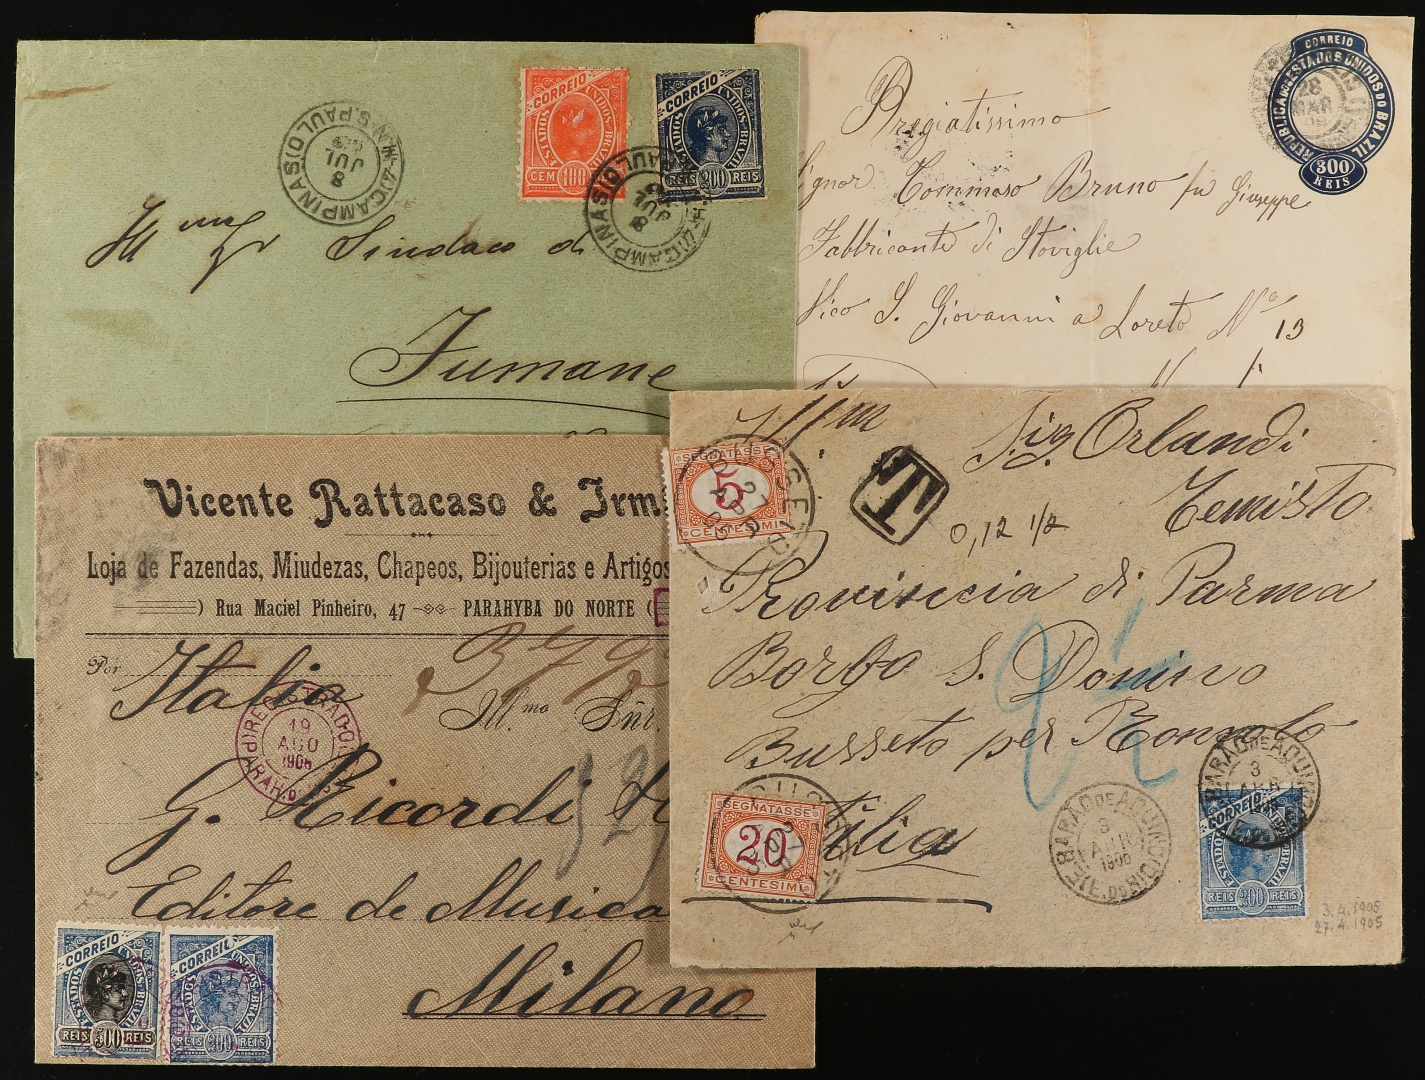 CAMPINAS (S. PAULO)
8
JUL
CORREIO
ESTADOS UNIDOS BRAZIL
CEM 100 REIS
CORREIO
ESTADOS UNIDOS BRAZIL
REIS 200 REIS
CAMPINAS (S. PAULO)
8
JUL
Sindaco di
Fumane
CORREIO
REPUBLICA DOS ESTADOS UNIDOS DO BRAZIL
300
REIS
28
MAR
Pregiatissimo
Signor Tommaso Bruno fu Giuseppe
Fabbricante di Stoviglie
Vico S. Giovanni a Loreto No 13
Vicente Rattacaso & Irm
Loja de Fazendas, Miudezas, Chapeos, Bijouterias e Artigos
Rua Maciel Pinheiro, 47 PARAHYBA DO NORTE
Por
Italia
Ill.mo Snr.
19
AGO
1906
G. Ricordi
Editore de Musica
Milano
CORREIO
ESTADOS UNIDOS BRAZIL
REIS 500 REIS
CORREIO
ESTADOS UNIDOS BRAZIL
REIS 200 REIS
SEGNATASSE
5
CENTESIMI
T
0,12 1/2
Sig. Orlandi
Temisto
Provinscia di Parma
Borgo S. Donino
Busseto per
Italia
SEGNATASSE
20
CENTESIMI
BARAO DE AQUINO
3
ABR
1905
BARAO DE AQUINO
3
ABR
CORREIO
ESTADOS UNIDOS BRAZIL
REIS 200 REIS
3.4.1905
27.4.1905